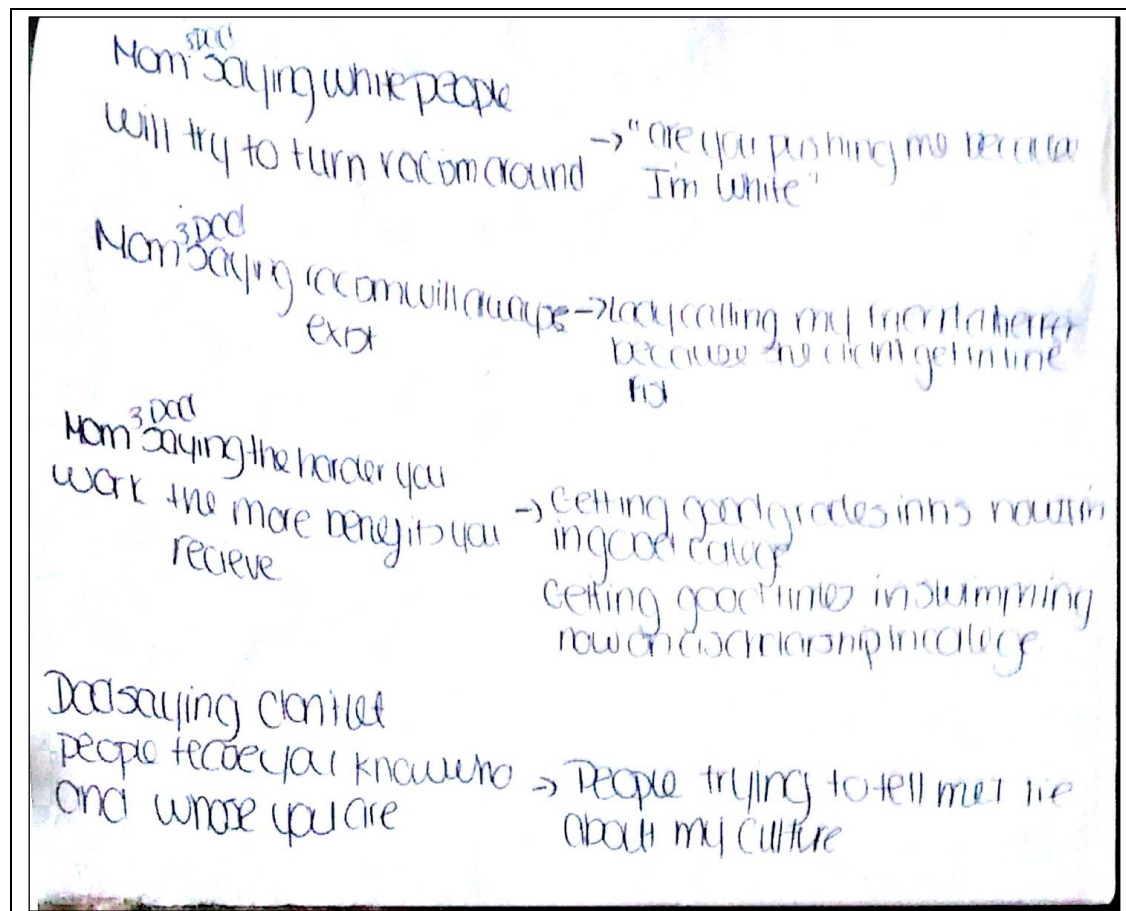 Mom & Dad saying white people
will try to turn racism around → "are you pushing me because
I'm white"
Mom & Dad saying racism will always → Lady calling my friend a
exist because she didn't get in line
Mom & Dad saying the harder you
work the more benefits you → Getting good grades in hs now I'm
recieve in good college
Getting good times in swimming
now on a scholarship in college
Dad saying don't let
people you know who → People trying to tell me I lie
and whose you are about my culture